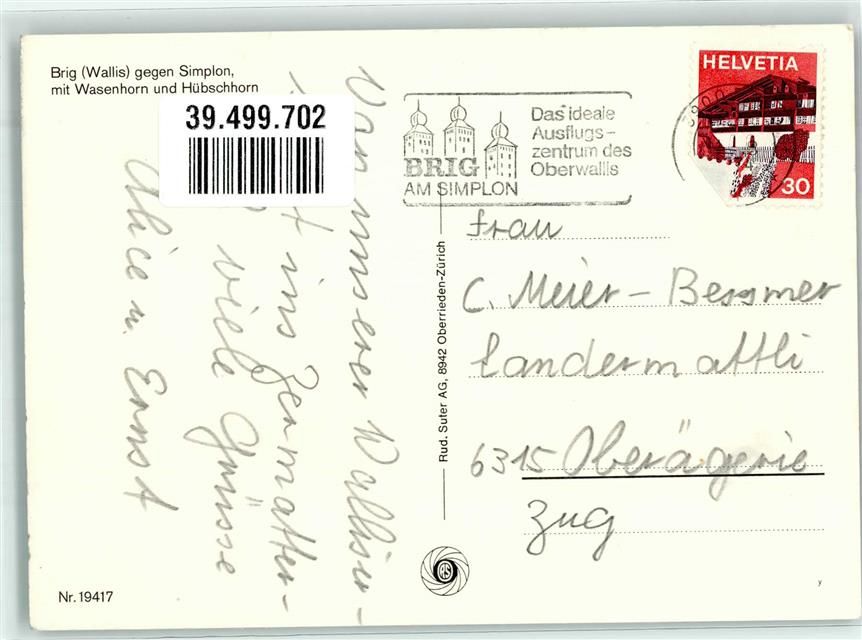 Brig (Wallis) gegen Simplon,
mit Wasenhorn und Hübschhorn
39.499.702
Von unserer Walliser-
ins Zermatter-
viele Grüsse
Alice u. Ernst
Nr. 19417
Rud. Suter AG, 8942 Oberrieden-Zürich
BRIG
AM SIMPLON
Das ideale
Ausflugs-
zentrum des
Oberwallis
HELVETIA
30
Frau
C. Meier - Bessmer
Landermattli
6315 Oberägerie
Zug
y